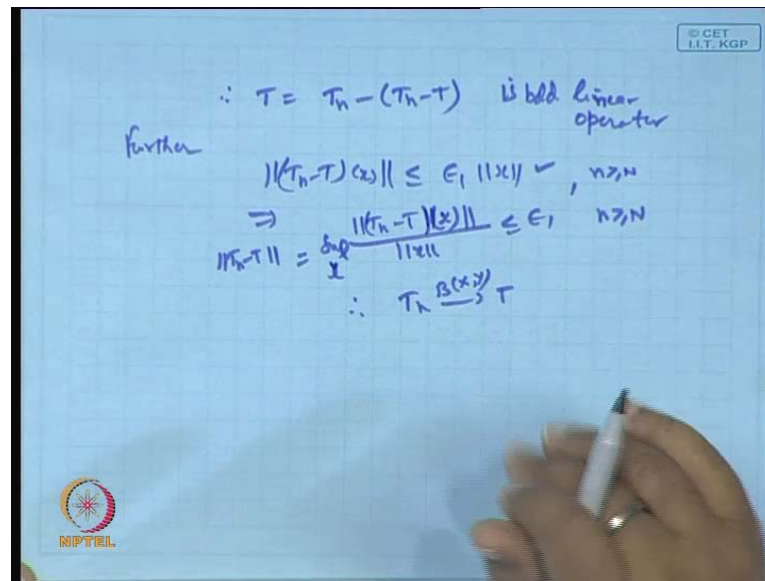 © CET
I.I.T. KGP
∴ T = Tₙ − (Tₙ−T) is bdd linear operator
Further
||(Tₙ−T)(x)|| ≤ ϵ₁ ||x|| ✓, n≥N
⇒
||Tₙ−T|| = Sup_x ||(Tₙ−T)(x)|| / ||x|| ≤ ϵ₁ n≥N
∴ Tₙ →^{B(X,Y)} T
NPTEL